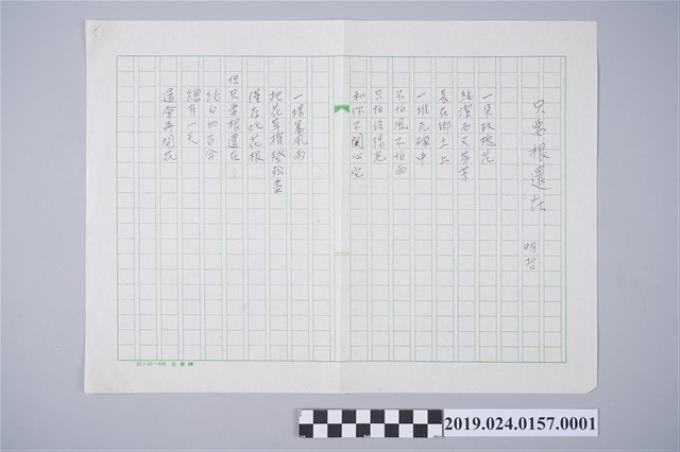 只要根還在
明哲
一朵玫瑰花
純潔而又芬芳
長在鄉土上
一堆瓦礫中
不怕風不怕雨
只怕沒陽光
和你不關心它
一場暴風雨
把花葉摧殘
僅存此花根
但只要根還在
純白的百合
總有一天
還會再開花
20×20=400
2019.024.0157.0001